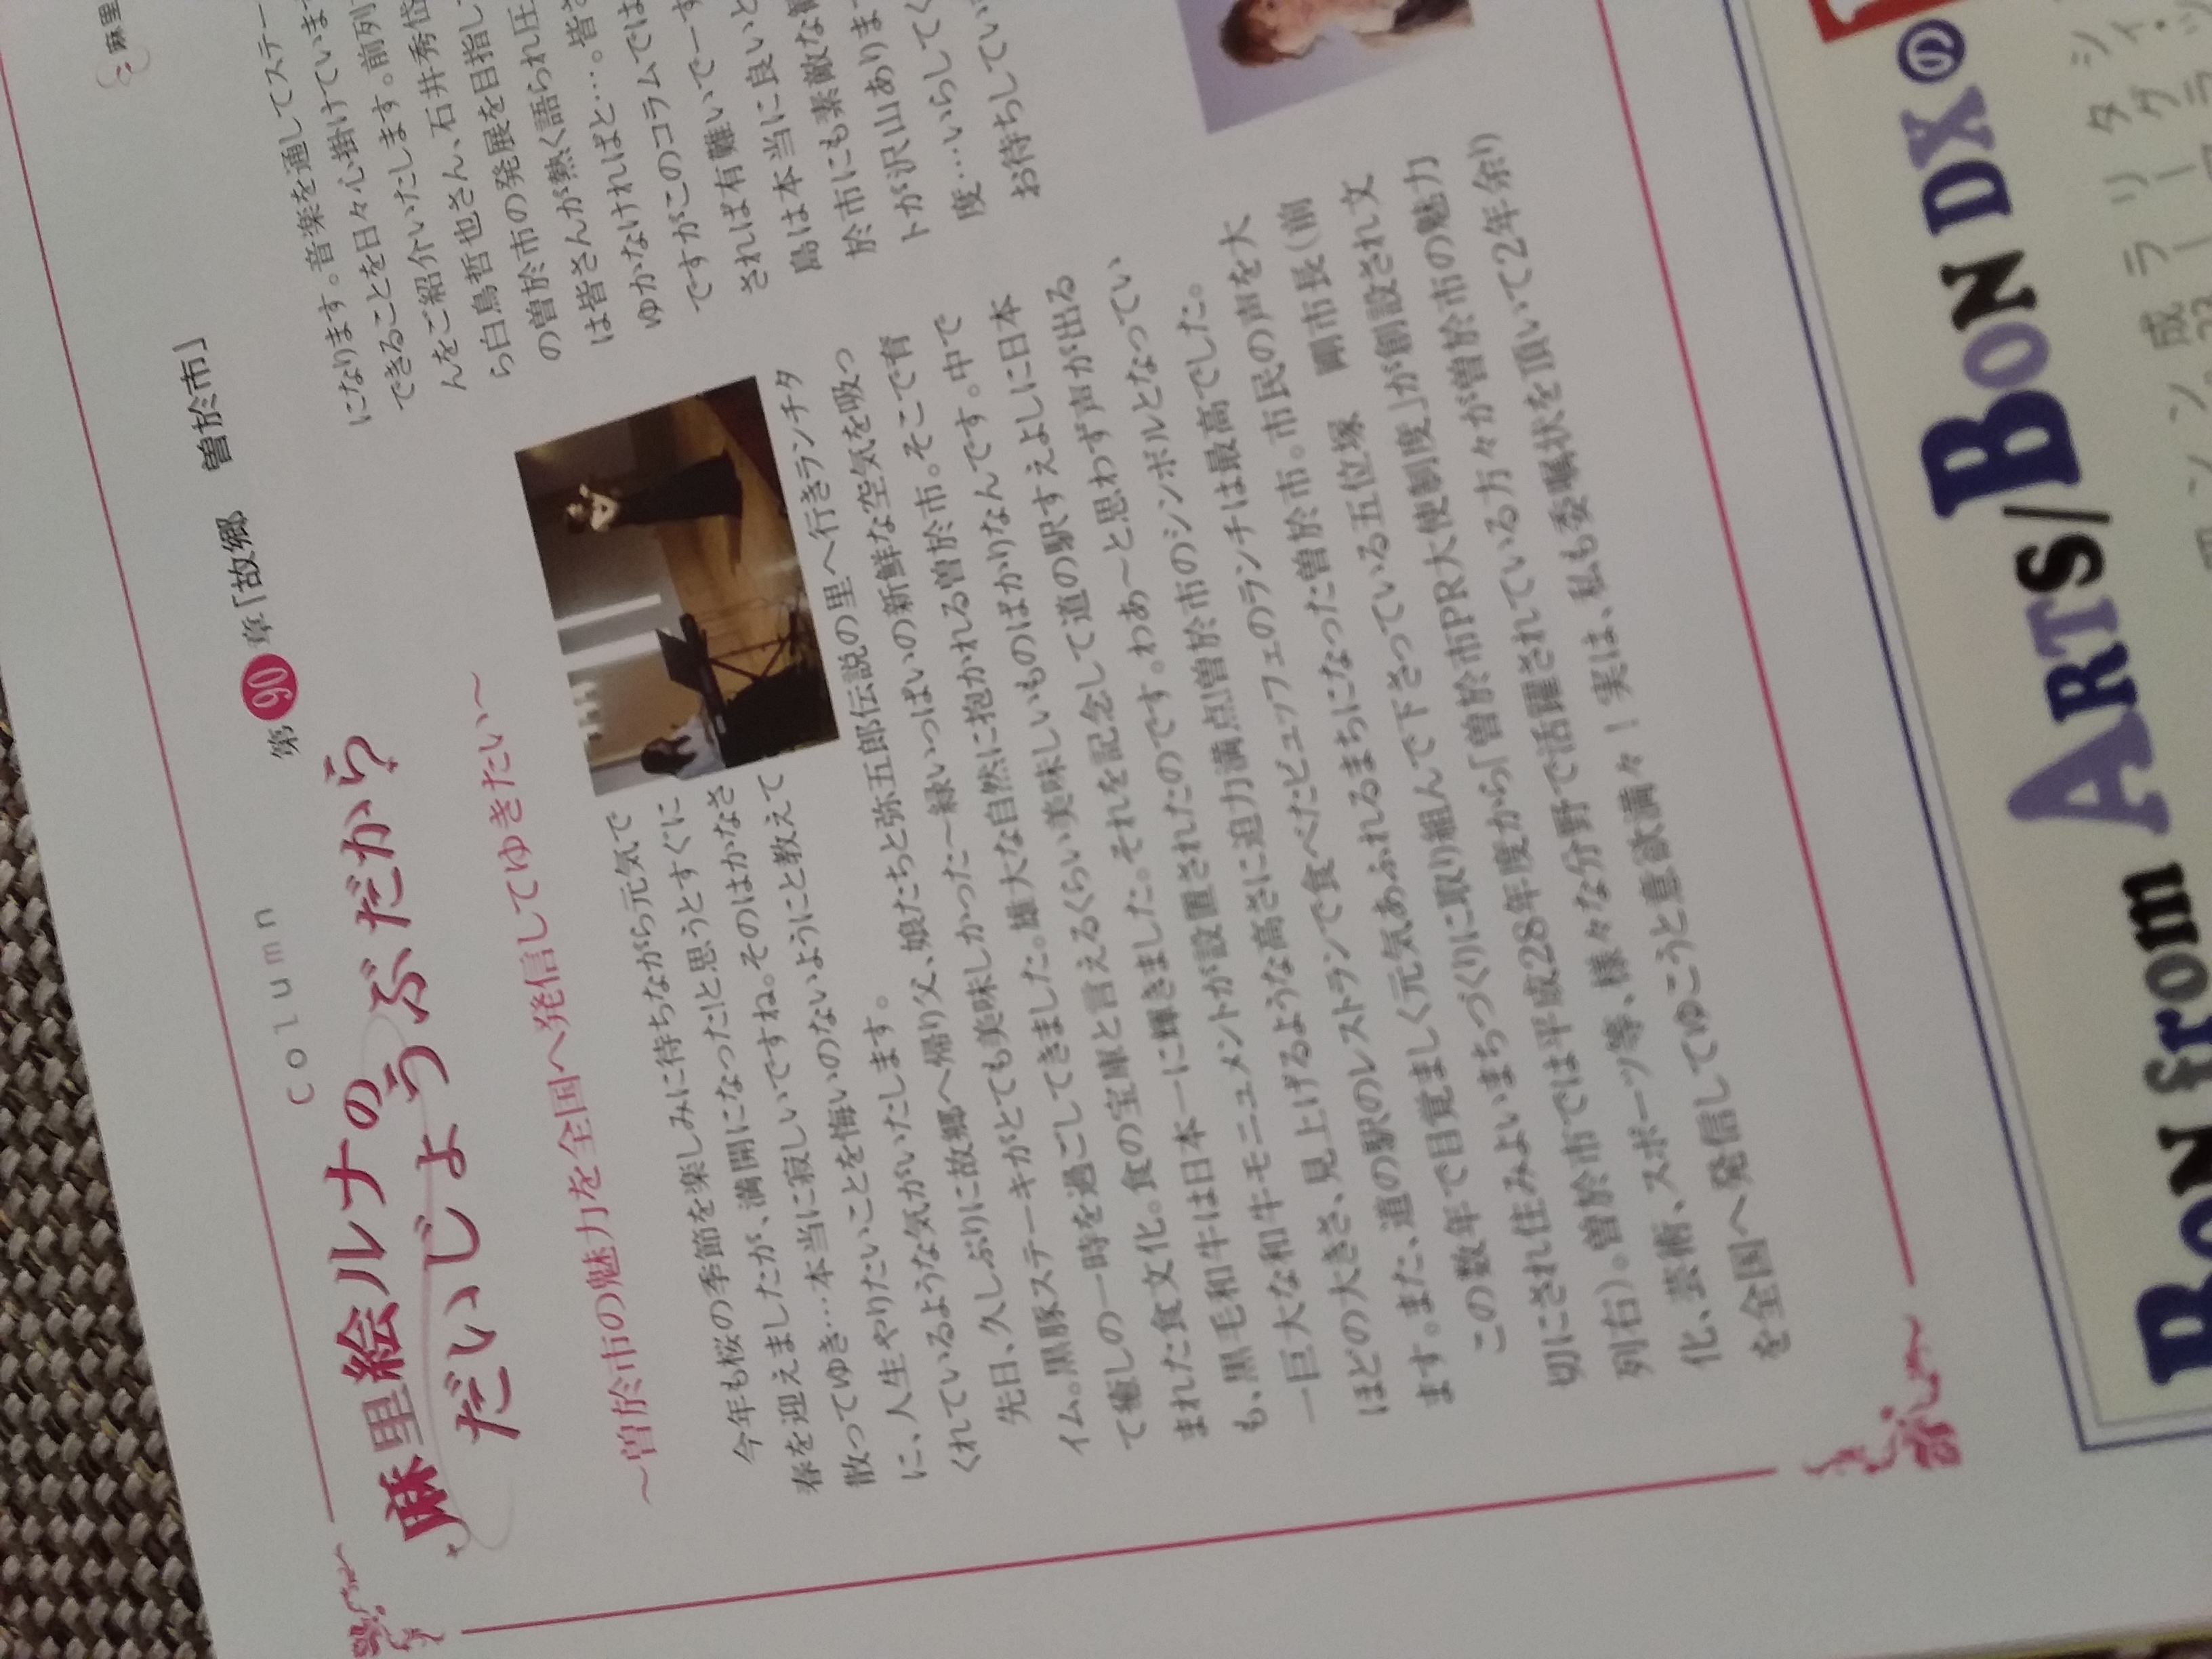 column
麻里絵ルナの
だいじょうぶだから
第90章「故郷 曽於市」
～曽於市の魅力を全国へ発信してゆきたい～
今年も桜の季節を楽しみに待ちながら元気で
春を迎えましたが、満開になった!と思うとすぐに
散ってゆき…本当に寂しいですね。そのはかなさ
に、人生やりたいことを悔いのないようにと教えて
くれているような気がいたします。
先日、久しぶりに故郷へ帰り父、娘たちと弥五郎伝説の里へ行きランチタ
イム。黒豚ステーキがとても美味しかった～緑いっぱいの新鮮な空気を吸っ
て癒しの一時を過ごしてきました。雄大な自然に抱かれる曽於市。そこで育
まれた食文化。食の宝庫と言えるくらい美味しいものばかりなんです。中で
も、黒毛和牛は日本一に輝きました。それを記念して道の駅すえよしに日本
一巨大な和牛モニュメントが設置されたのです。わあ～と思わず声が出る
ほどの大きさ、見上げるような高さに迫力満点!曽於市のシンボルとなってい
ます。また、道の駅のレストランで食べたビュッフェのランチは最高でした。
この数年で目覚ましく元気あふれるまちになった曽於市。市民の声を大
切にされ住みよいまちづくりに取り組んで下さっている五位塚 剛市長(前
列右)。曽於市では平成28年度から「曽於市PR大使制度」が創設され文
化、芸術、スポーツ等、様々な分野で活躍されている方々が曽於市の魅力
を全国へ発信してゆこうと意欲満々!実は、私も委嘱状を頂いて2年余り
になります。音楽を通してステー
できることを日々心掛けていま
んをご紹介いたします。前列
ら白鳥哲也さん、石井秀
の曽於市の発展を目指し
は皆さんが熱く語られ圧
ゆかなければと…。皆さ
ですがこのコラムでは
されば有難いで～す
島は本当に良いと
於市にも素敵な
トが沢山ありま
度…いらしてく
お待ちしてい
麻里
BON from ARTS/BON DXの